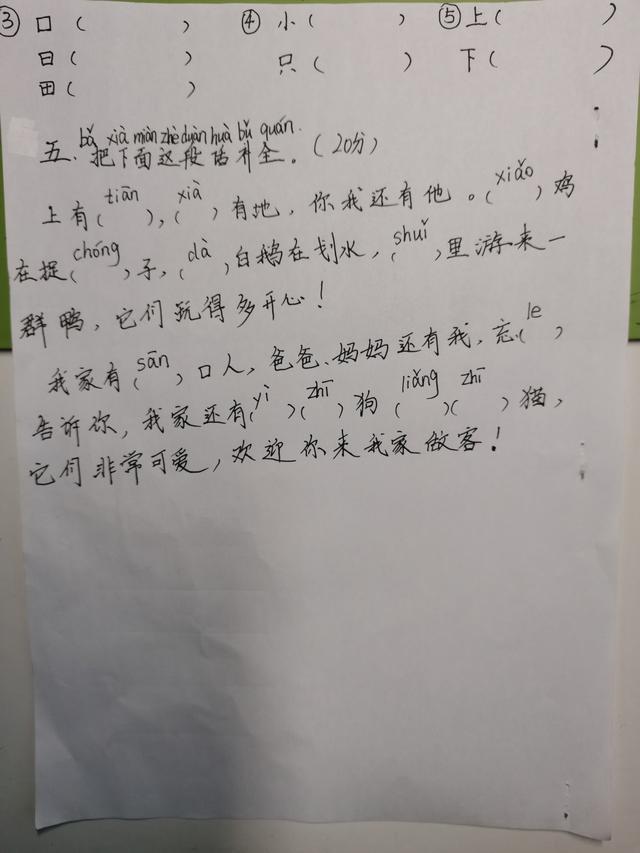 ③ 口（ ） ④ 小（ ） ⑤ 上（ ）
日（ ） 只（ ） 下（ ）
田（ ）
bǎ xià miàn zhè duàn huà bǔ quán.
五、把下面这段话补全。（20分）
tiān xià xiǎo
上有（ ），（ ）有地，你我还有他。（ ）鸡
chóng dà shuǐ
在捉（ ）子，（ ）白鹅在划水，（ ）里游来一
群鸭，它们玩得多开心！
sān le
我家有（ ）口人，爸爸、妈妈还有我，忘（ ），
yì zhī liǎng zhī
告诉你，我家还有（ ）（ ）狗（ ）（ ）猫，
它们非常可爱，欢迎你来我家做客！